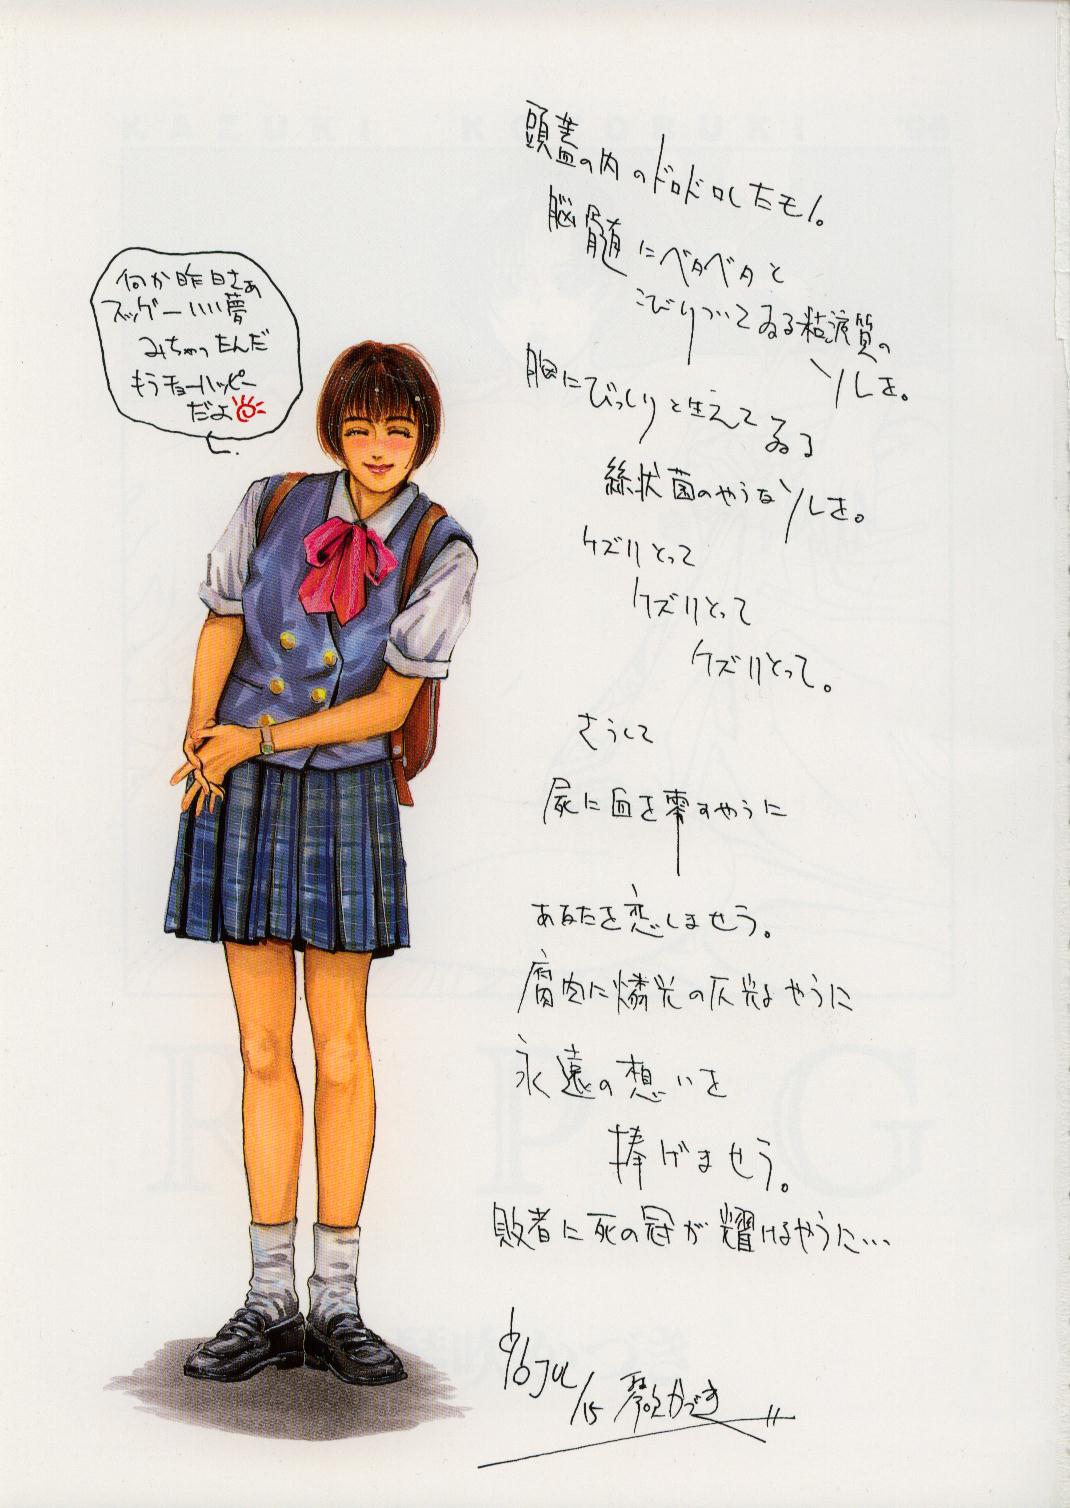 何か昨日さぁ
スッゲーいい夢
みちゃったんだ
もうチョーハッピー
だよ
頭蓋の内のドロドロしたモノ。
脳髄にベタベタと
こびりついてゐる粘液質の
ソレを。
胸にびっしりと生えてゐる
絲状菌のやうなソレを。
ケズリとって
ケズリとって
ケズリとって。
さうして
尻に血を零すやうに
あなたを恋しませう。
腐肉に燐光の灰光るやうに
永遠の想いを
捧げませう。
敗者に死の冠が耀けるやうに…
'96 JUL
/15 琴吹かづき
KAZUKI KOTOBUKI '96
R P G
琴吹かづき